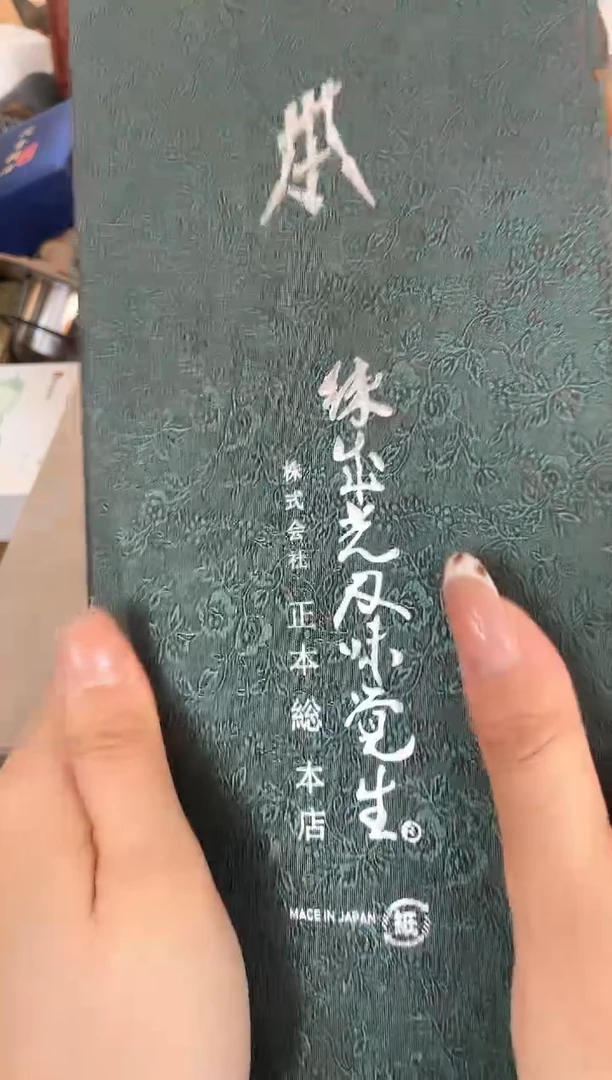 出光味覚生®
株式会社 正本総本店
MADE IN JAPAN 紙